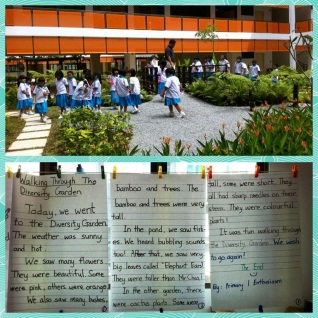 Walking Through The
Diversity Garden
Today, we went
to the Diversity Garden.
The weather was sunny
and hot.
We saw many flowers.
They were beautiful. Some
were pink, others were orange.
We also saw many bushes,
bamboo and trees. The
bamboo and trees were very
tall.
In the pond, we saw fish-
es. We heard bubbling sounds
too! After that, we saw very
big leaves called "Elephant Ears".
They were taller than Ms Chua!
In the other garden, there
were cactus plants. Some were
tall, some were short. They
all had sharp needles on their
stems. They were colourful
plants!
It was fun walking through
the Diversity Garden. We wish
to go again!
The End
By: Primary 1